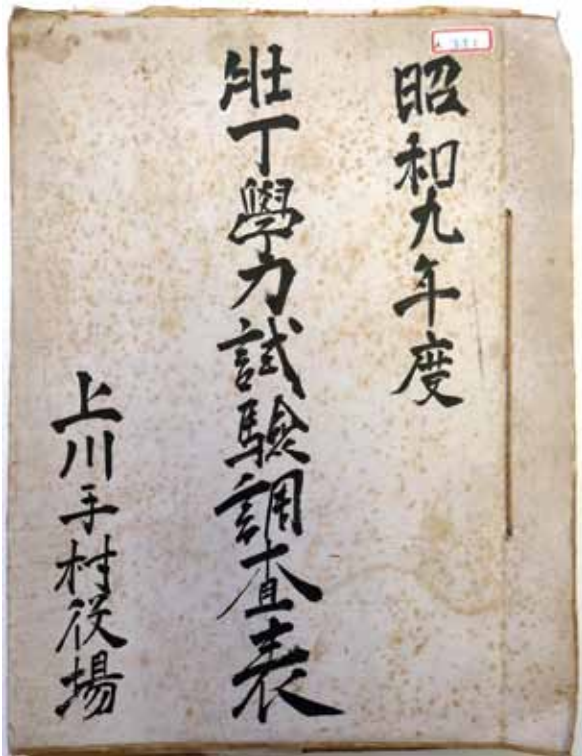 昭和九年度
壯丁學力試驗調査表
上川手村役場